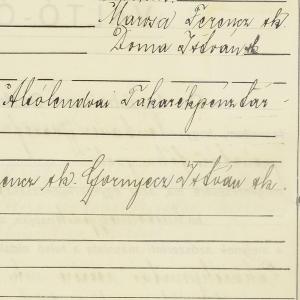 Marosa Ferencz sk
Doma István sk
Alsólendvai Takarékpénztár
encz sk. Gornyecz István sk.